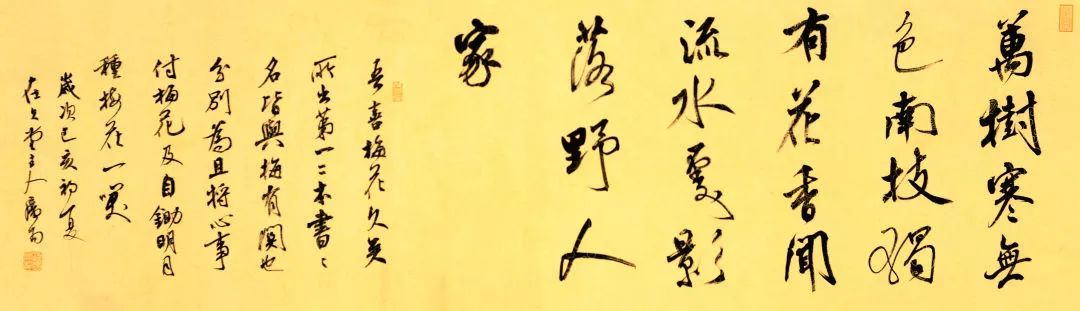 萬樹寒無
色南枝獨
有花香聞
流水處影
落野人
家
吾喜梅花久矣
所出第一二本書〻
名皆與梅有關也
分別為且將心事
付梅花及自鋤明月
種梅花一笑
歲次己亥初夏
在久堂主人